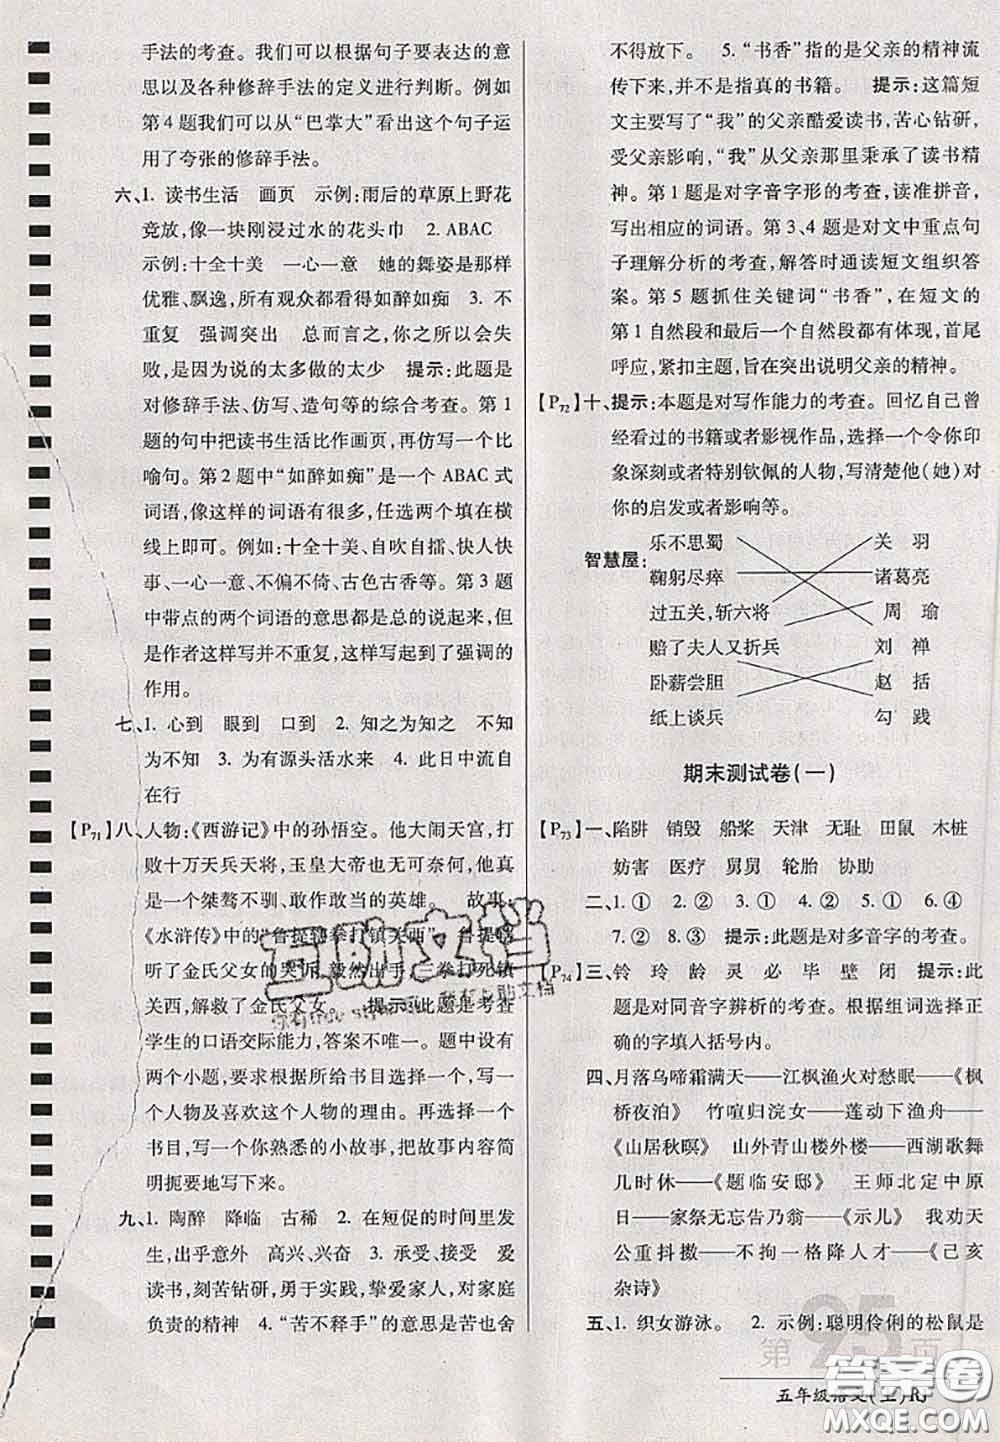 手法的考查。我们可以根据句子要表达的意
思以及各种修辞手法的定义进行判断。例如
第4题我们可以从“巴掌大”看出这个句子运
用了夸张的修辞手法。
六、1. 读书生活　画页　示例:雨后的草原上野花
竞放,像一块刚浸过水的花头巾　2. ABAC
示例:十全十美　一心一意　她的舞姿是那样
优雅、飘逸,所有观众都看得如醉如痴　3. 不
重复　强调突出　总而言之,你之所以会失
败,是因为说的太多做的太少　提示:此题是
对修辞手法、仿写、造句等的综合考查。第1
题的句中把读书生活比作画页,再仿写一个比
喻句。第2题中“如醉如痴”是一个 ABAC 式
词语,像这样的词语有很多,任选两个填在横
线上即可。例如:十全十美、自吹自擂、快人快
事、一心一意、不偏不倚、古色古香等。第3题
中带点的两个词语的意思都是总的说起来,但
是作者这样写并不重复,写起到了强调的
作用。
七、1. 心到　眼到　口到　2. 知之为知之　不知
为不知　3. 为有源头活水来　4. 此日中流自
在行
【P71】八、人物:《西游记》中的孙悟空。他大闹天宫,打
败十万天兵天将,玉皇大帝也无可奈何,他真
是一个桀骜不驯、敢作敢当的英雄。　故事:
《水浒传》中的“鲁提辖拳打镇关西”。鲁提辖
听了金氏父女的哭诉,毅然出手,三拳打死镇
关西,解救了金氏父女。　提示:此题是考查
学生的口语交际能力,答案不唯一。题中设有
两个小题,要根据所给书目选择一个人物,写
一个人物及喜欢这个人物的理由。再选择一个
书目,写一个你熟悉的小故事,把故事内容简
明扼要地写下来。
九、1. 陶醉　降临　古稀　2. 在短促的时间里发
生,出乎意外　高兴、兴奋　3. 承受、接受　爱
读书,刻苦钻研,勇于实践,挚爱家人,对家庭
负责的精神　4. “苦不释手”的意思是苦也舍
不得放下。　5. “书香”指的是父亲的精神流
传下来,而不是指真的书籍。　提示:这篇短
文主要写了“我”的父亲酷爱读书,苦心钻研,
受父亲影响,“我”从父亲那里养成了读书精
神。第1题是对字音字形的考查,读准拼音,
写出相应的词语。第3、4题是对文中重点句
子理解分析的考查,解答时通读短文组织答
案。第5题抓住关键词“书香”,在短文的
第1自然段和最后一个自然段都有体现,首尾
呼应,紧扣主题,旨在突出说明父亲的精神。
【P72】十、提示:本题是对写作能力的考查。回忆自己曾
经看过的书籍或者影视作品,选择一个令你印
象深刻或者特别钦佩的人物,写清楚他(她)对
你的启发或者影响等。
智慧屋:
乐不思蜀　关　羽
鞠躬尽瘁　诸葛亮
过五关,斩六将　周　瑜
赔了夫人又折兵　刘　禅
卧薪尝胆　赵　括
纸上谈兵　勾　践
期末测试卷(一)
【P73】一、陷阱　销毁　船桨　天津　无耻　田鼠　木桩
妨害　医疗　舅舅　轮胎　协助
二、1. ①　2. ②　3. ②　4. ②　5. ①　6. ④
7. ②　8. ③　提示:此题是对多音字的考查。
【P74】三、铃　玲　龄　灵　必　毕　壁　闭　提示:此
题是对同音字辨析的考查。根据组词选择正
确的字填入括号内。
四、月落乌啼霜满天——江枫渔火对愁眠——《枫
桥夜泊》　竹喧归浣女——莲动下渔舟——
《山居秋暝》　山外青山楼外楼——西湖歌舞
几时休——《题临安邸》　王师北定中原
日——家祭无忘告乃翁——《示儿》　我劝天
公重抖擞——不拘一格降人才——《己亥
杂诗》
五、1. 织女游泳。　2. 示例:聪明伶俐的松鼠是
第95页
五年级语文(上)RJ
互助文档
答案圈
MXQE.COM